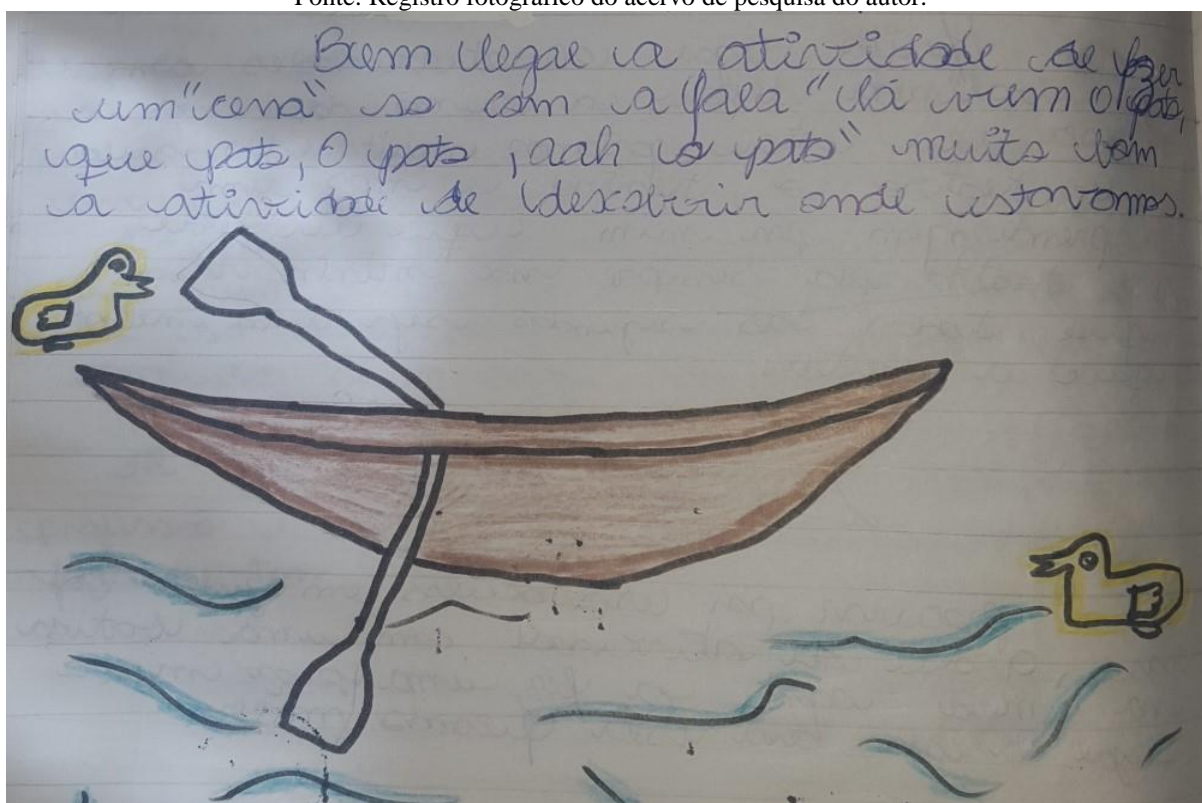 Fonte: Registro fotográfico do acervo de pesquisa do autor.
Bem legal a atividade de fazer
um "cena" so com a fala "lá vem o pato,
que pato, O pato, aah o pato" muito bom
a atividade de descobrir onde estavamos.